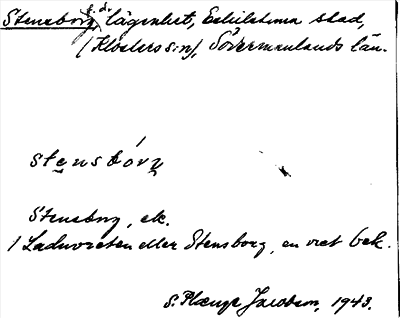 Stensborg, f.d. lägenhet, Eskilstuna stad,
(Klosters sn), Södermanlands län.
stensbórɡ
Stensborg, ek.
1 Laduvreten eller Stensborg, en vret bek.
S. Plænge Jacobson, 1943.